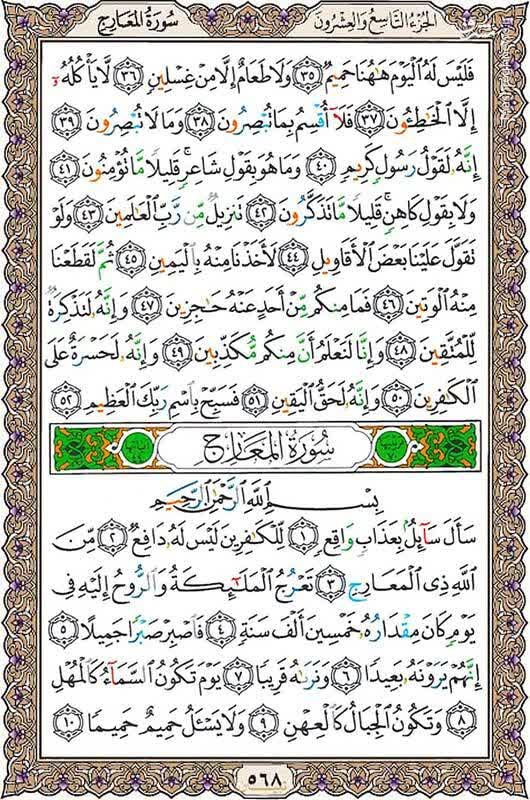 الجزء التاسع والعشرون
سورة المعارج
فَلَيْسَ لَهُ ٱلْيَوْمَ هَٰهُنَا حَمِيمٌ ٣٥ وَلَا طَعَامٌ إِلَّا مِنْ غِسْلِينٍ ٣٦ لَّا يَأْكُلُهُۥٓ
إِلَّا ٱلْخَٰطِـُٔونَ ٣٧ فَلَآ أُقْسِمُ بِمَا تُبْصِرُونَ ٣٨ وَمَا لَا تُبْصِرُونَ ٣٩
إِنَّهُۥ لَقَوْلُ رَسُولٍ كَرِيمٍ ٤٠ وَمَا هُوَ بِقَوْلِ شَاعِرٍ ۚ قَلِيلًا مَّا تُؤْمِنُونَ ٤١
وَلَا بِقَوْلِ كَاهِنٍ ۚ قَلِيلًا مَّا تَذَكَّرُونَ ٤٢ تَنزِيلٌ مِّن رَّبِّ ٱلْعَٰلَمِينَ ٤٣ وَلَوْ
تَقَوَّلَ عَلَيْنَا بَعْضَ ٱلْأَقَاوِيلِ ٤٤ لَأَخَذْنَا مِنْهُ بِٱلْيَمِينِ ٤٥ ثُمَّ لَقَطَعْنَا
مِنْهُ ٱلْوَتِينَ ٤٦ فَمَا مِنكُم مِّنْ أَحَدٍ عَنْهُ حَٰجِزِينَ ٤٧ وَإِنَّهُۥ لَتَذْكِرَةٌ
لِّلْمُتَّقِينَ ٤٨ وَإِنَّا لَنَعْلَمُ أَنَّ مِنكُم مُّكَذِّبِينَ ٤٩ وَإِنَّهُۥ لَحَسْرَةٌ عَلَى
ٱلْكَٰفِرِينَ ٥٠ وَإِنَّهُۥ لَحَقُّ ٱلْيَقِينِ ٥١ فَسَبِّحْ بِٱسْمِ رَبِّكَ ٱلْعَظِيمِ ٥٢
سورة المعارج
بِسْمِ ٱللَّهِ ٱلرَّحْمَٰنِ ٱلرَّحِيمِ
سَأَلَ سَآئِلٌۢ بِعَذَابٍ وَاقِعٍ ١ لِّلْكَٰفِرِينَ لَيْسَ لَهُۥ دَافِعٌ ٢ مِّنَ
ٱللَّهِ ذِى ٱلْمَعَارِجِ ٣ تَعْرُجُ ٱلْمَلَٰٓئِكَةُ وَٱلرُّوحُ إِلَيْهِ فِى
يَوْمٍ كَانَ مِقْدَارُهُۥ خَمْسِينَ أَلْفَ سَنَةٍ ٤ فَٱصْبِرْ صَبْرًا جَمِيلًا ٥
إِنَّهُمْ يَرَوْنَهُۥ بَعِيدًا ٦ وَنَرَىٰهُ قَرِيبًا ٧ يَوْمَ تَكُونُ ٱلسَّمَآءُ كَٱلْمُهْلِ
٨ وَتَكُونُ ٱلْجِبَالُ كَٱلْعِهْنِ ٩ وَلَا يَسْـَٔلُ حَمِيمٌ حَمِيمًا ١٠
٥٦٨